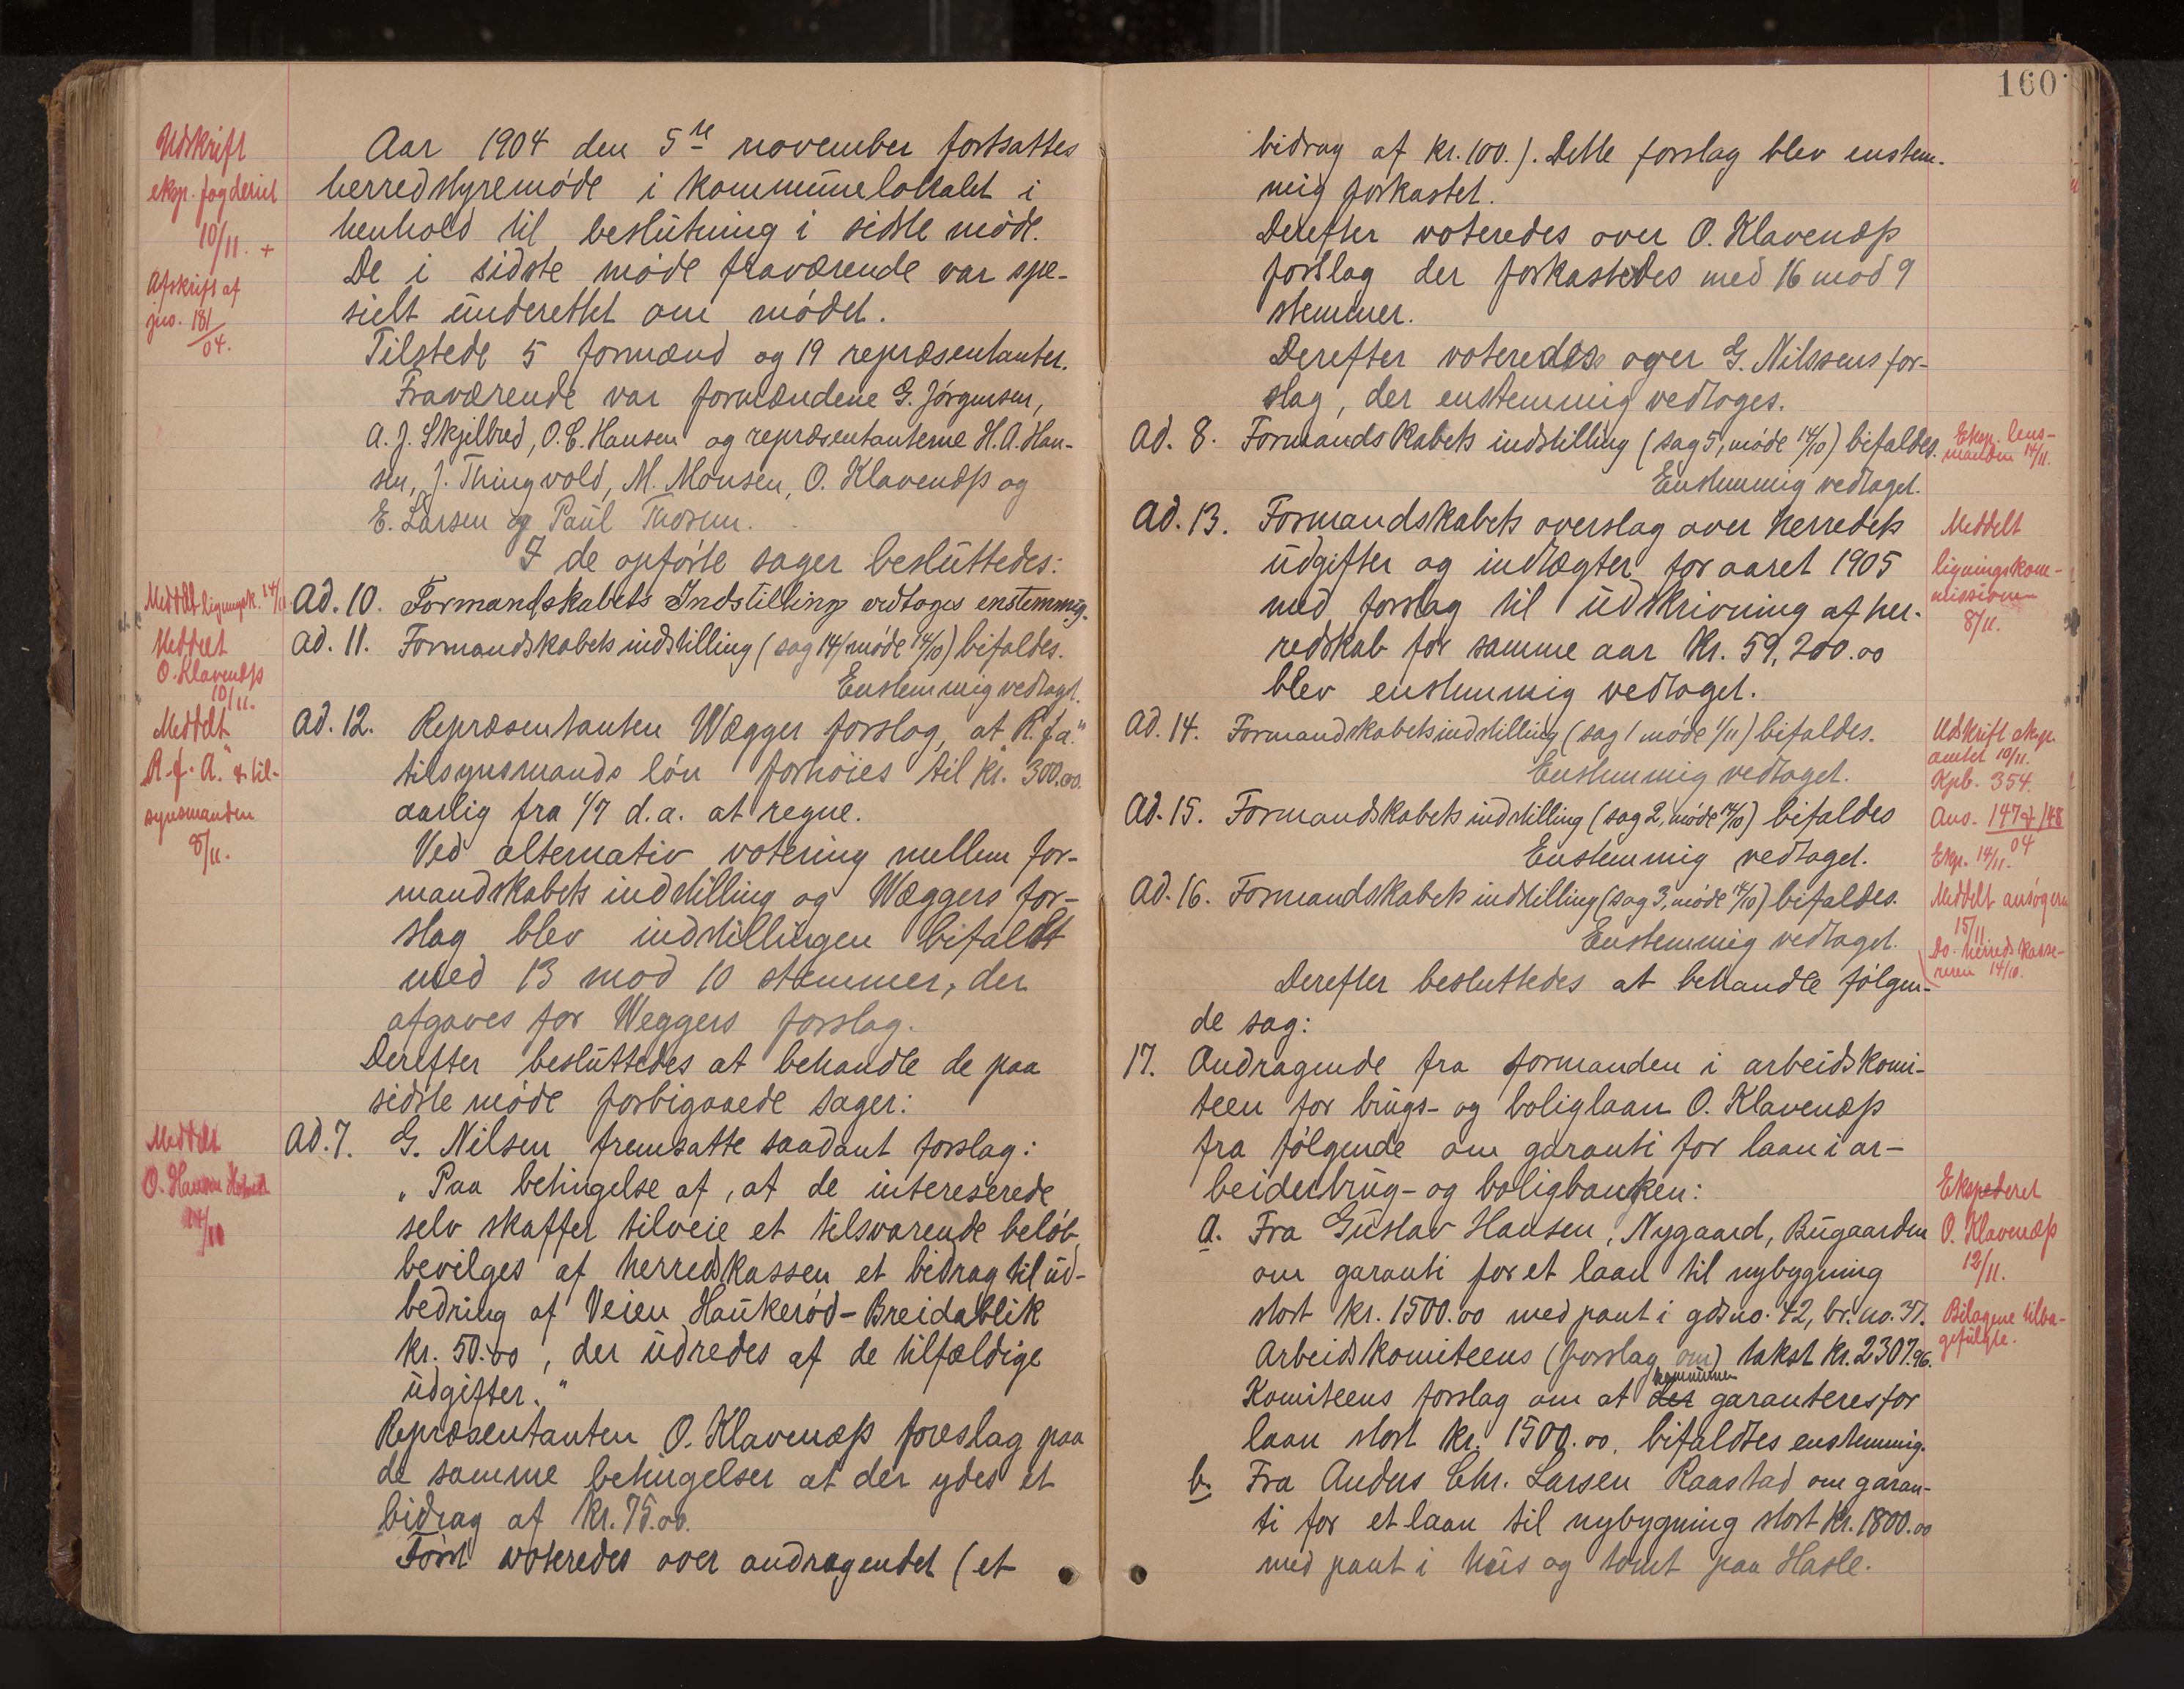 Udskrift
eksp. fogderiet
10/11. +
Afskrift af
jno. 181/04.
Aar 1904 den 5te november fortsattes
herredstyremøde i kommunelokalet i
henhold til beslutning i sidste møde.
De i sidste møde fraværende var spe-
sielt underettet om mødet.
Tilstede 5 formænd og 19 repræsentanter.
Fraværende var formændene G. Jørgensen,
A. J. Skjelbred, O. C. Hansen og repræsentanterne H. A. Han-
sen, J. Thingvold, M. Monsen, O. Klavenæss og
E. Larsen og Paul Thoresen.
I de opførte sager besluttedes:
Meddelt ligningsk. 14/11
Ad. 10. Formandskabets Indstilling vedtoges enstemmig.
Meddelt
O. Klavenæss
10/11.
Ad. 11. Formandskabets indstilling (sag 14, møde 14/10) bifaldes.
Enstemmig vedtaget.
Meddelt
"R. f. A." & til-
synsmanden
8/11.
Ad. 12. Repræsentanten Wægger forslog, at "R. f. a."
tilsynsmands løn forhøies til kr. 300.00.
aarlig fra 1/7 d.a. at regne.
Ved alternativ votering mellem for-
mandskabets indstilling og Wæggers for-
slag blev indstillingen bifaldt
med 13 mod 10 stemmer, der
afgaves for Weggers forslag.
Derefter besluttedes at behandle de paa
sidste møde forbigaaede sager:
Meddelt
O. Hansen
14/10
Ad. 7. G. Nilsen fremsatte saadant forslag:
„Paa betingelse af, at de intereserede
selv skaffer tilveie et tilsvarende beløb,
bevilges af herredskassen et bidrag til ud-
bedring af Veien Haukerød - Breidablik
kr. 50.00, der udredes af de tilfældige
udgifter."
Repræsentanten O. Klavenæss foreslog paa
de samme betingelser at der ydes et
bidrag af kr. 75.00.
Først voteredes over andragendet (et
160
bidrag af kr. 100.). Dette forslag blev enstem-
mig forkastet.
Derefter voteredes over O. Klavenæss
forslag der forkastedes med 16 mod 9
stemmer.
Derefter voteredes over G. Nilssens for-
slag, der enstemmig vedtoges.
Ad. 8. Formandskabets indstilling (sag 5, møde 14/10) bifaldes.
Enstemmig vedtaget.
Eksp. lens-
manden 14/11.
Ad. 13. Formandskabets overslag over herredets
udgifter og indtægter for aaret 1905
med forslag til udskrivning af her-
redskab for samme aar kr. 59,200.00
blev enstemmig vedtaget.
Meddelt
ligningskom-
missionen
8/11.
Ad. 14. Formandskabets indstilling (sag 1 møde 1/11) bifaldes.
Enstemmig vedtaget.
Udskrift eksp.
amtet 10/11.
Kpb. 354.
Ad. 15. Formandskabets indstilling (sag 2, møde 14/10) bifaldes
Enstemmig vedtaget.
Ano. 147 & 148/04
Eksp. 14/11.
Ad. 16. Formandskabets indstilling (sag 3, møde 14/10) bifaldes.
Enstemmig vedtaget.
Meddelt ansøgeren
15/11
Do. herredskasse-
reren 14/10.
Derefter besluttedes at behandle følgen-
de sag:
17. Andragende fra formanden i arbeidskomi-
teen for brugs- og boliglaan O. Klavenæss
fra følgende om garanti for laan i ar-
beiderbrug- og boligbanken:
a. Fra Gustav Hansen, Nygaard, Bugaarden
om garanti for et laan til nybygning
stort kr. 1500.00 med pant i gdsno. 42, br. no. 37.
Arbeidskomiteens (forslag om) takst kr. 2307.96.
kommunen
Komiteens forslag om at der garanteres for
laan stort kr. 1500.00. bifaldtes enstemmig.
Ekspederet
O. Klavenæss
12/11.
Bilagene tilba-
gefulgte.
b. Fra Anders Chr. Larsen Raastad om garan-
ti for et laan til nybygning stort kr. 1800.00
med pant i hus og tomt paa Hasle.